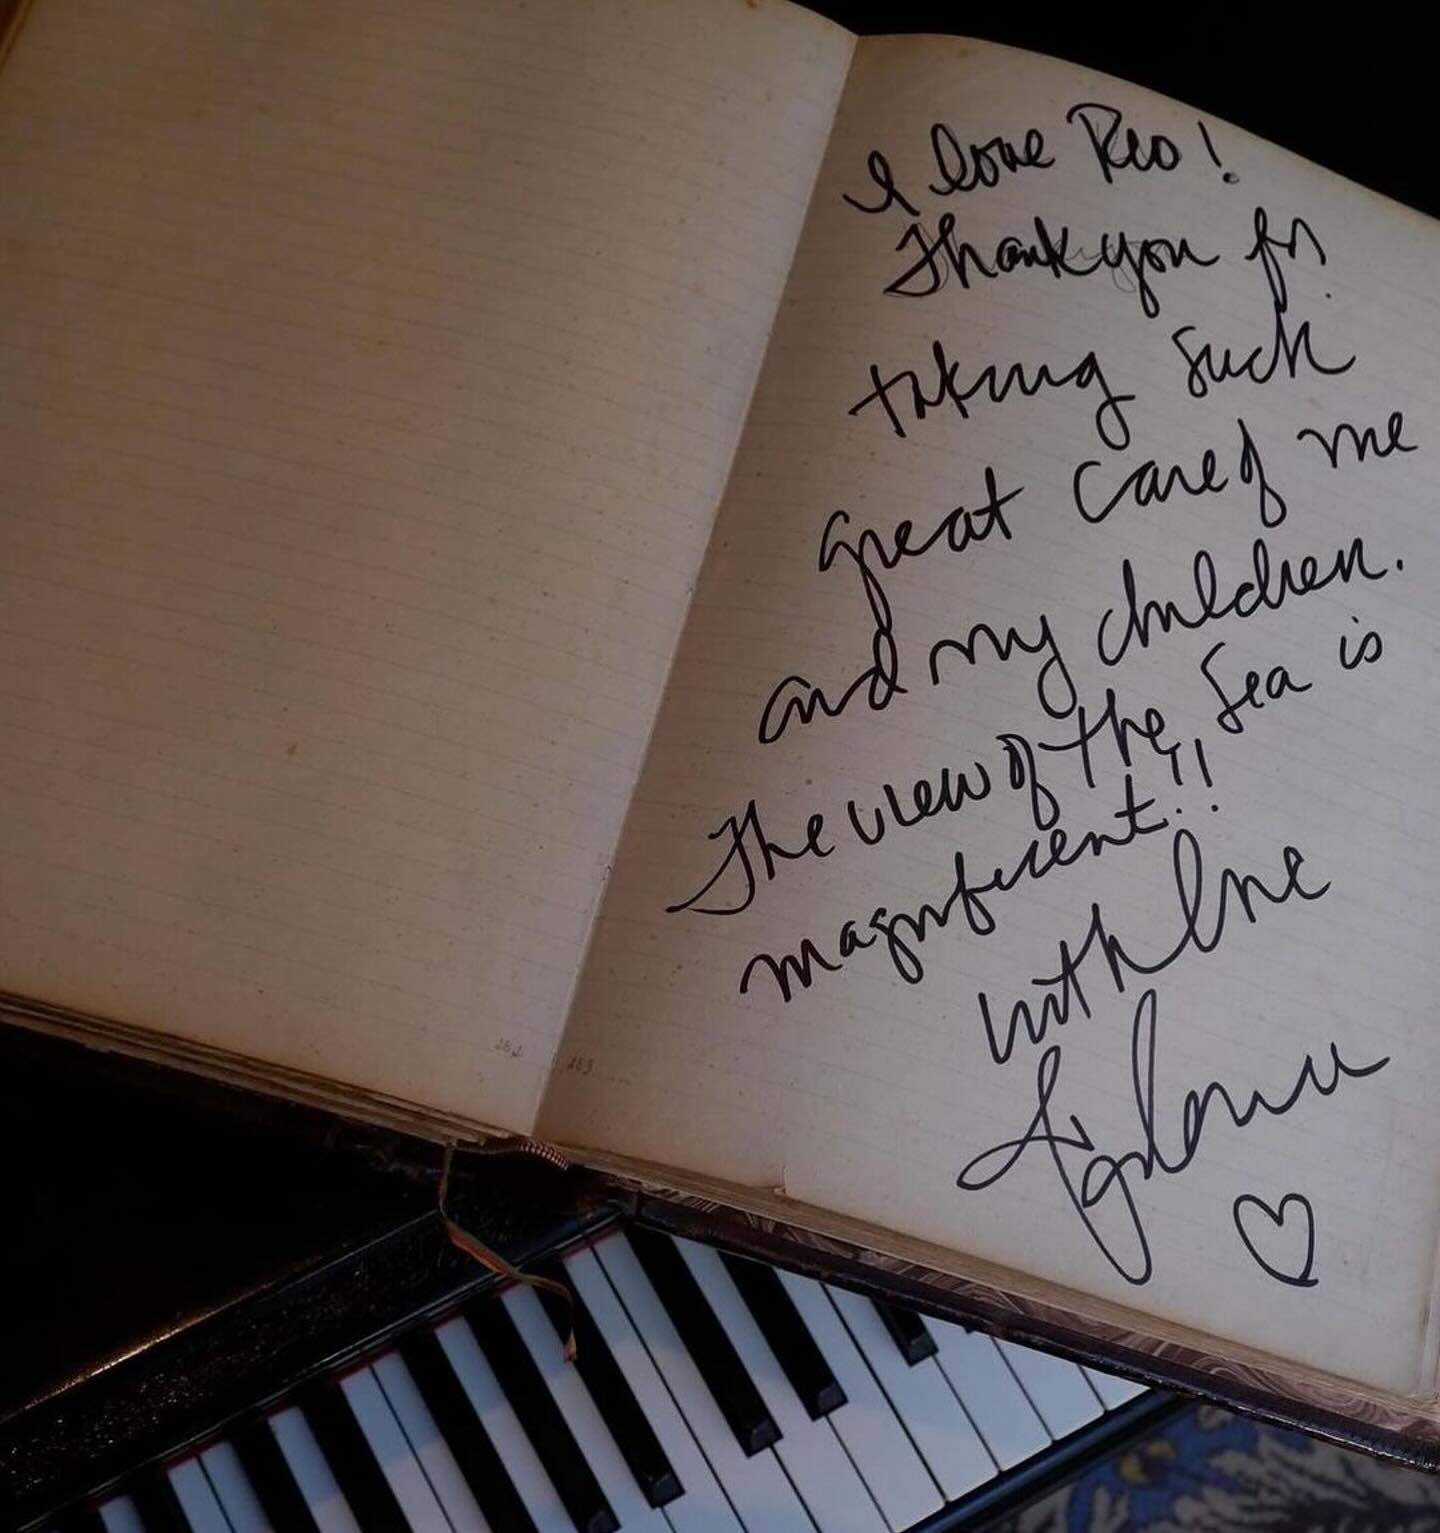 I love Rio!
Thank you for
taking such
great care of me
and my children.
The view of the Sea is
magnificent!!
with love
282
283